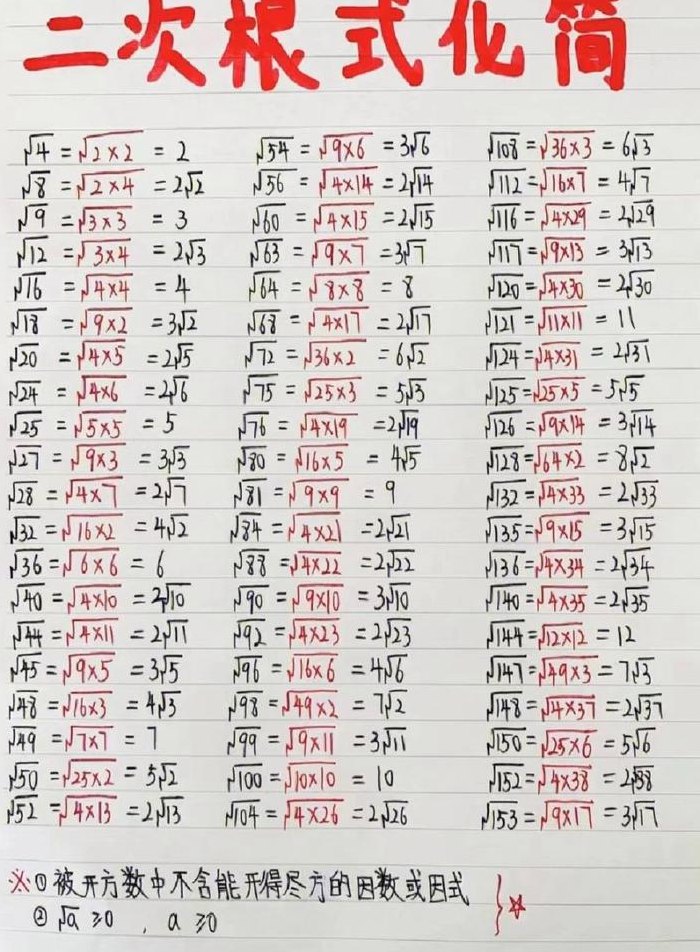 二次根式化简
√4 = √2×2 = 2
√8 = √2×4 = 2√2
√9 = √3×3 = 3
√12 = √3×4 = 2√3
√16 = √4×4 = 4
√18 = √9×2 = 3√2
√20 = √4×5 = 2√5
√24 = √4×6 = 2√6
√25 = √5×5 = 5
√27 = √9×3 = 3√3
√28 = √4×7 = 2√7
√32 = √16×2 = 4√2
√36 = √6×6 = 6
√40 = √4×10 = 2√10
√44 = √4×11 = 2√11
√45 = √9×5 = 3√5
√48 = √16×3 = 4√3
√49 = √7×7 = 7
√50 = √25×2 = 5√2
√52 = √4×13 = 2√13
√54 = √9×6 = 3√6
√56 = √4×14 = 2√14
√60 = √4×15 = 2√15
√63 = √9×7 = 3√7
√64 = √8×8 = 8
√68 = √4×17 = 2√17
√72 = √36×2 = 6√2
√75 = √25×3 = 5√3
√76 = √4×19 = 2√19
√80 = √16×5 = 4√5
√81 = √9×9 = 9
√84 = √4×21 = 2√21
√88 = √4×22 = 2√22
√90 = √9×10 = 3√10
√92 = √4×23 = 2√23
√96 = √16×6 = 4√6
√98 = √49×2 = 7√2
√99 = √9×11 = 3√11
√100 = √10×10 = 10
√104 = √4×26 = 2√26
√108 = √36×3 = 6√3
√112 = √16×7 = 4√7
√116 = √4×29 = 2√29
√117 = √9×13 = 3√13
√120 = √4×30 = 2√30
√121 = √11×11 = 11
√124 = √4×31 = 2√31
√125 = √25×5 = 5√5
√126 = √9×14 = 3√14
√128 = √64×2 = 8√2
√132 = √4×33 = 2√33
√135 = √9×15 = 3√15
√136 = √4×34 = 2√34
√140 = √4×35 = 2√35
√144 = √12×12 = 12
√147 = √49×3 = 7√3
√148 = √4×37 = 2√37
√150 = √25×6 = 5√6
√152 = √4×38 = 2√38
√153 = √9×17 = 3√17
※ ① 被开方数中不含能开得尽方的因数或因式
② √a ≥0 , a ≥0